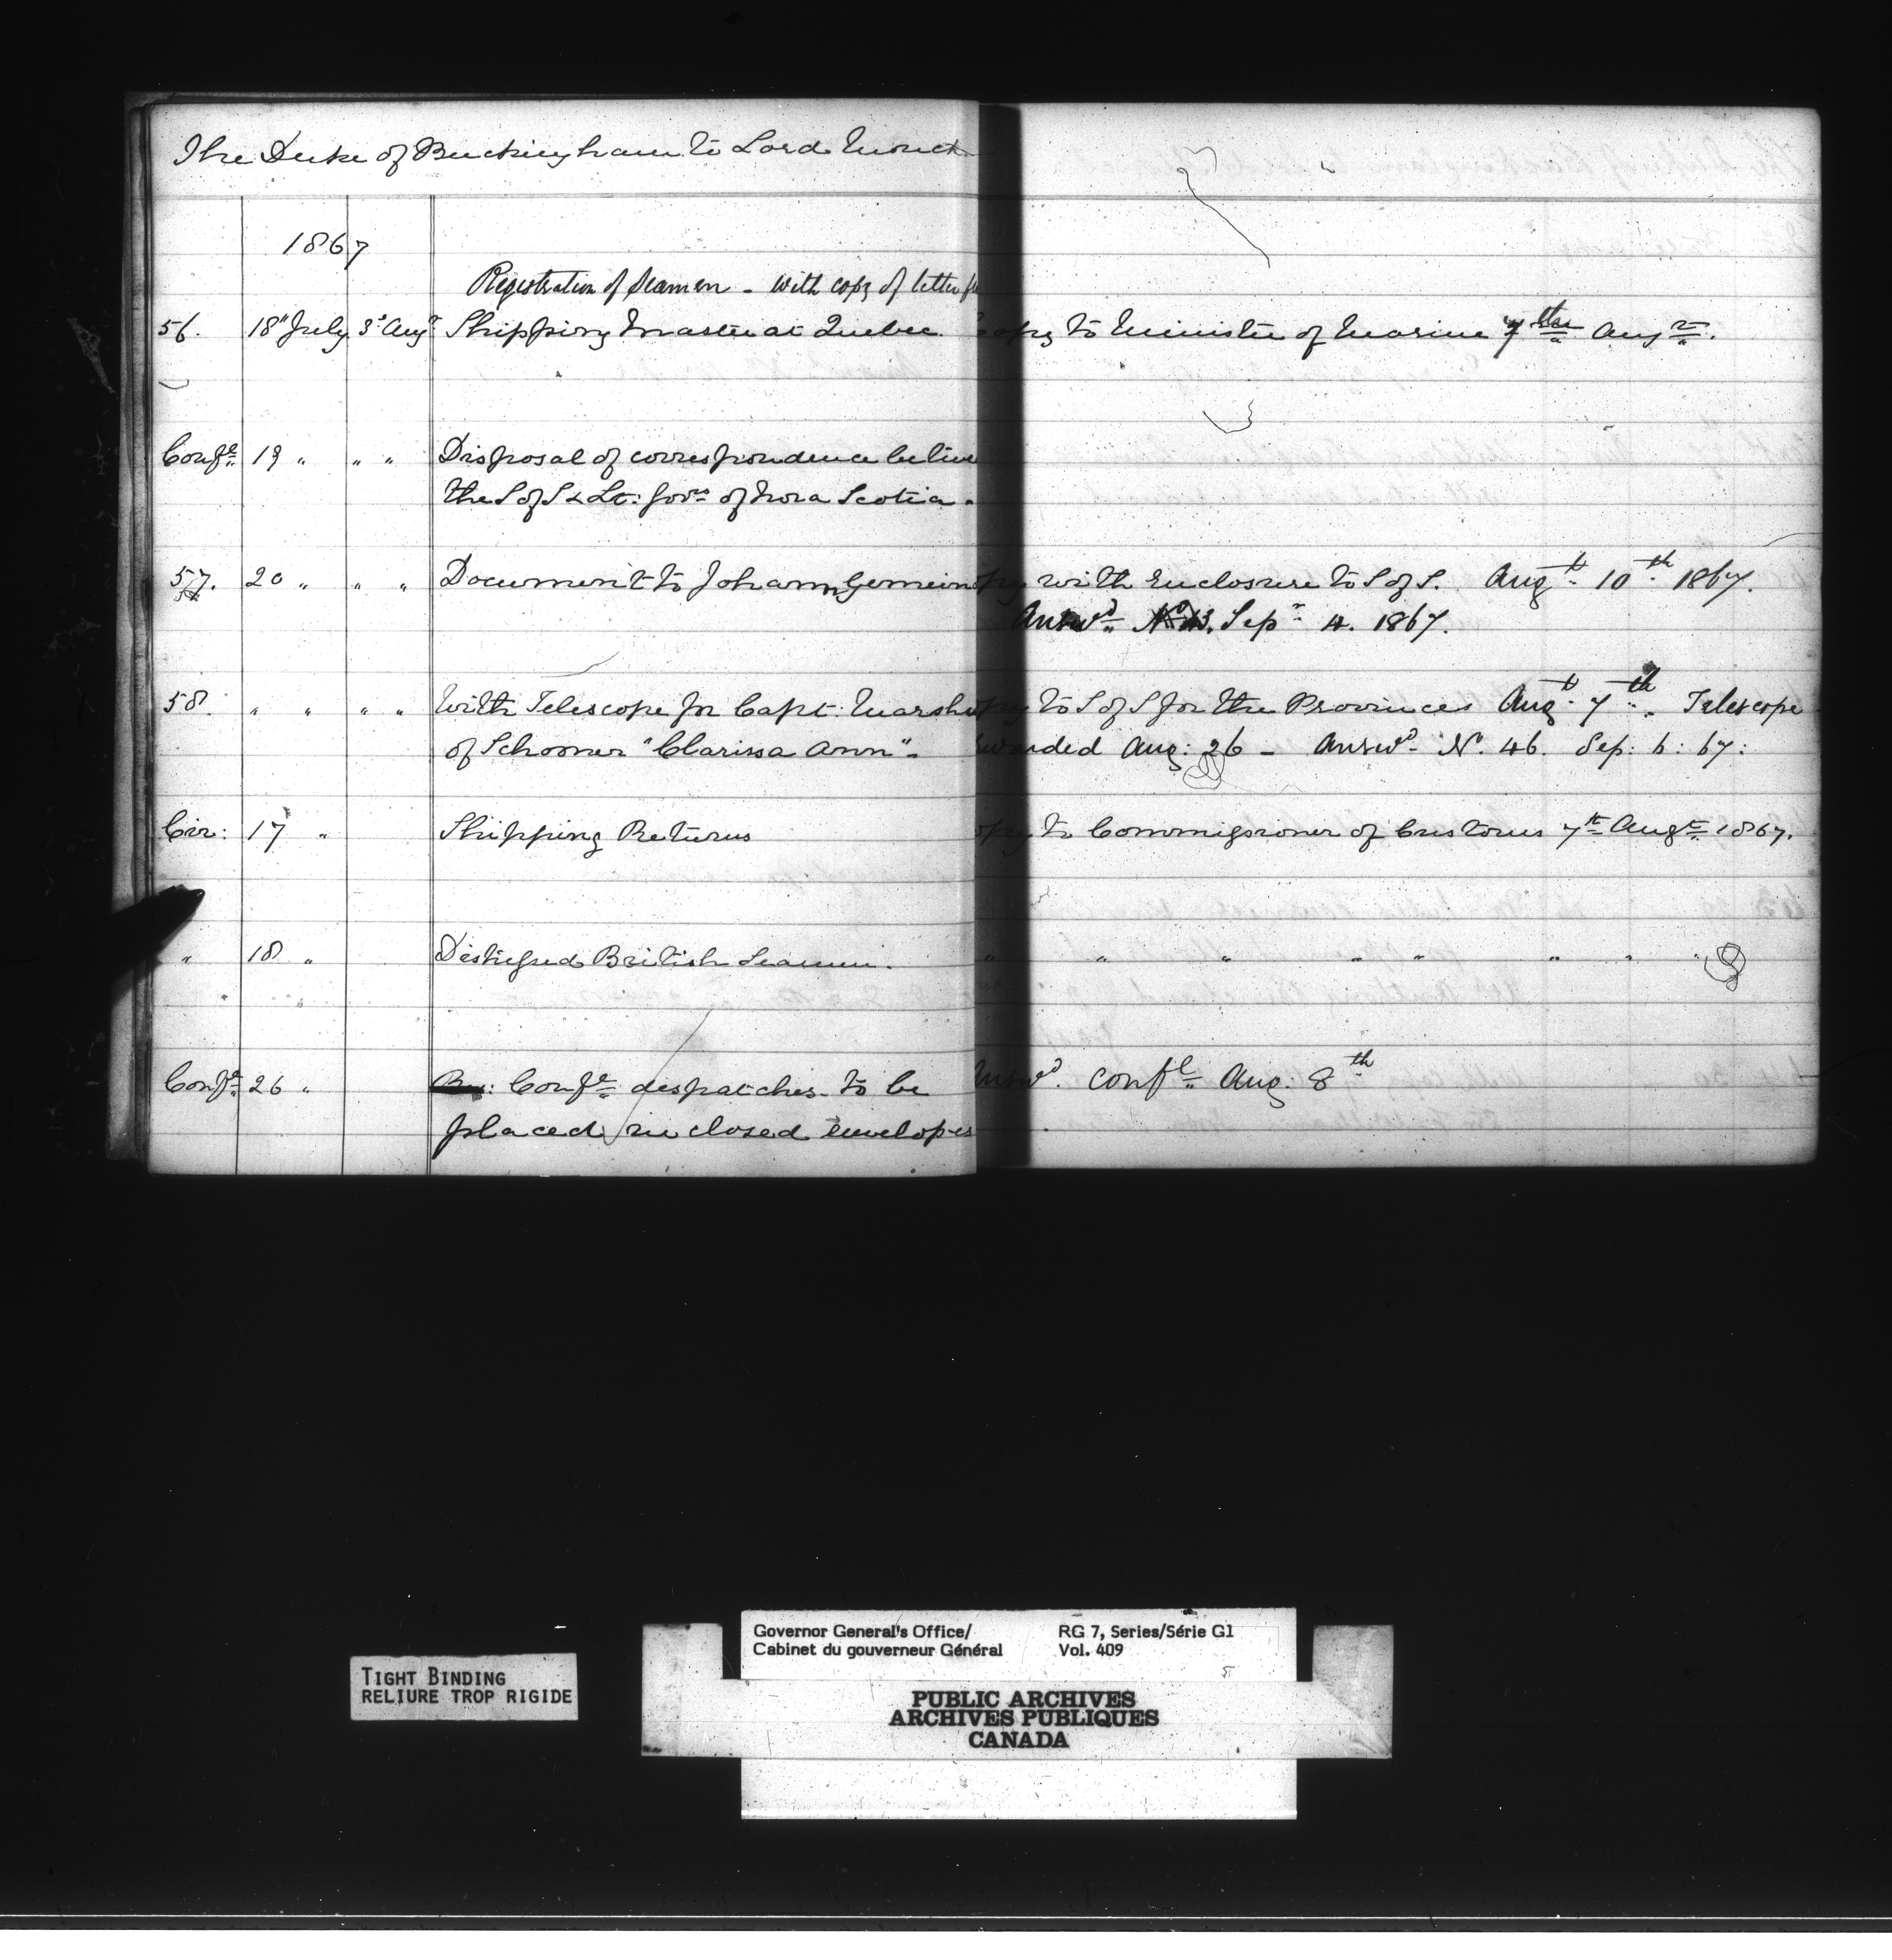 The Duke of Buckingham to Lord Monck
1867
Registration of Seamen - with copy of letter
56. 18" July 3d Augt Shipping Master at Quebec Copy to Minister of Marine 7th Augst.
Confl 19 " " " Disposal of correspondence betwe
the S of S & Lt: Govr of Nova Scotia.
57. 20 " " " Document to Johann Gemein opy with Enclosure to S of S. Augt 10th 1867.
Answd No 43. Sepr 4. 1867.
58. " " " " With Telescope for Capt: Marsh opy to S of S for the Provinces Augt 7th. Telescope
of Schooner "Clarissa Ann". rwarded Aug: 26 - Answd No. 46. Sep: 6: 67:
Cir: 17 " Shipping Returns opy to Commissioner of Customs 7th Augst 1867.
" 18 " Distressed British Seamen. " " " " " " " "
" "
Confl 26 " Confl despatches to be Answd. Confl Aug: 8th
placed in closed envelopes
TIGHT BINDING
RELIURE TROP RIGIDE
Governor General's Office/ RG 7, Series/Série G1
Cabinet du gouverneur Général Vol. 409
PUBLIC ARCHIVES
ARCHIVES PUBLIQUES
CANADA